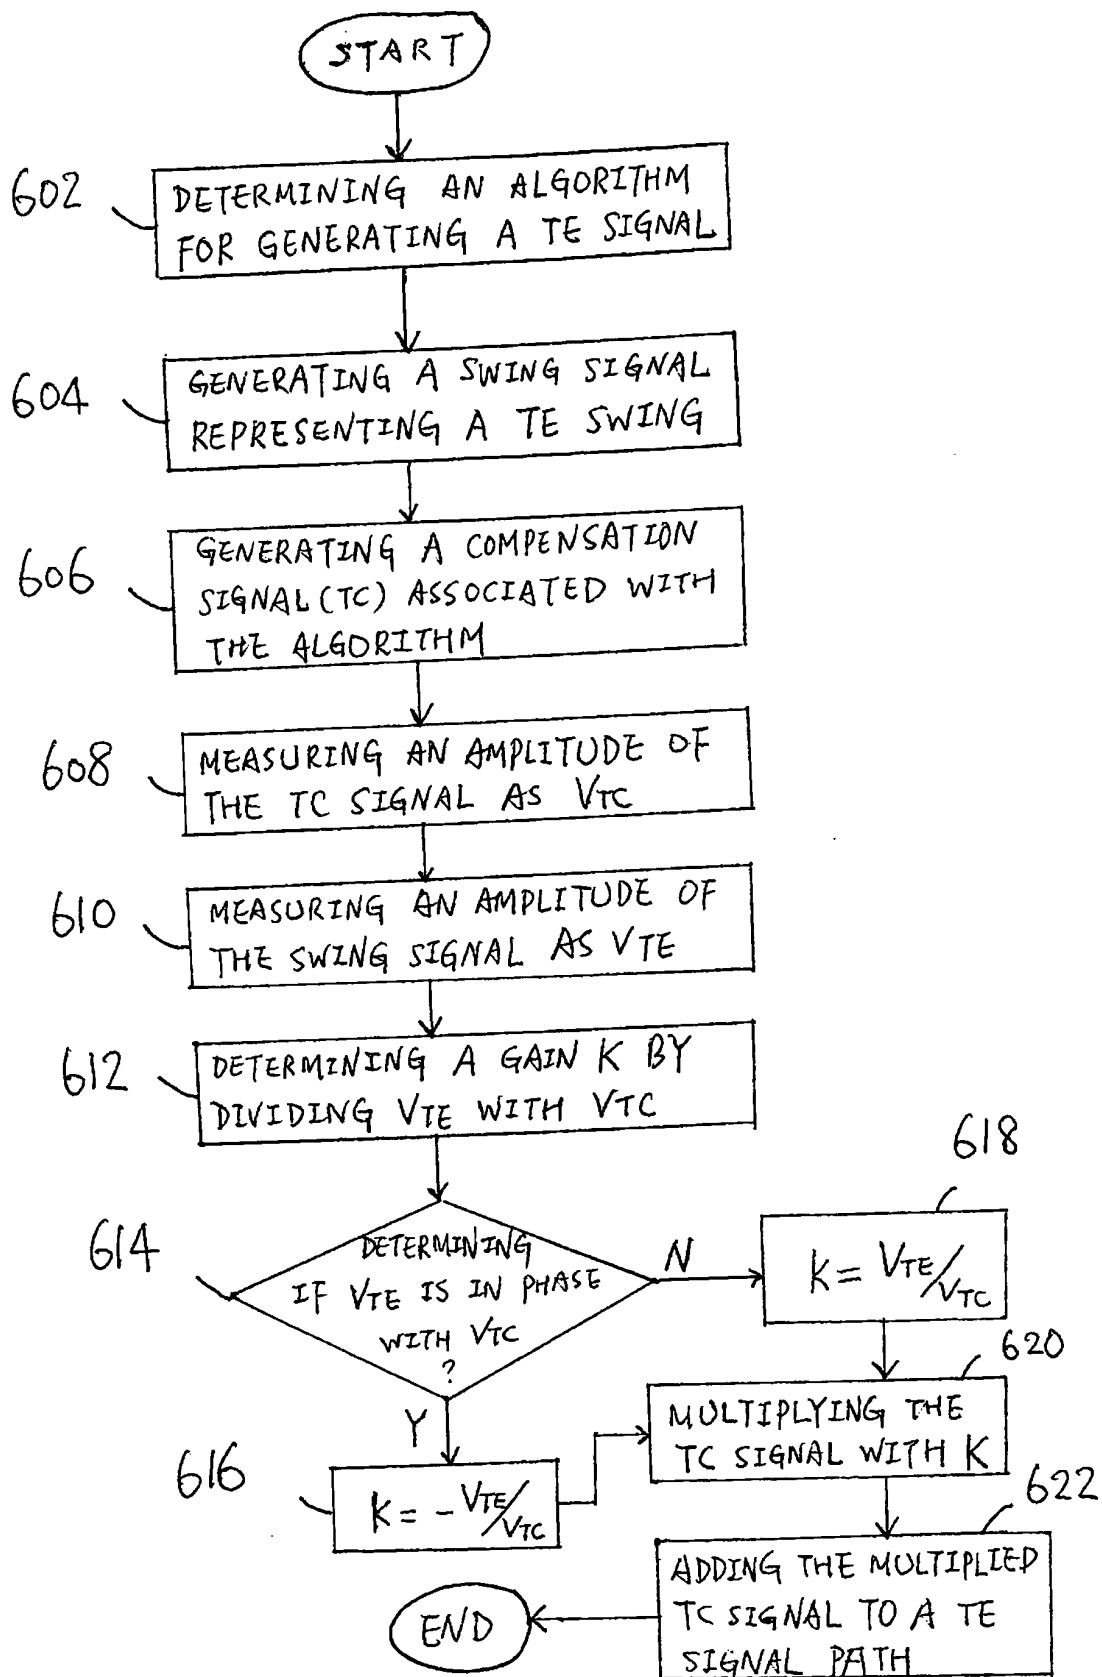 START
602
DETERMINING AN ALGORITHM
FOR GENERATING A TE SIGNAL
604
GENERATING A SWING SIGNAL
REPRESENTING A TE SWING
606
GENERATING A COMPENSATION
SIGNAL(TC) ASSOCIATED WITH
THE ALGORITHM
608
MEASURING AN AMPLITUDE OF
THE TC SIGNAL AS VTC
610
MEASURING AN AMPLITUDE OF
THE SWING SIGNAL AS VTE
612
DETERMINING A GAIN K BY
DIVIDING VTE WITH VTC
614
DETERMINING
IF VTE IS IN PHASE
WITH VTC
?
N
618
K = VTE/VTC
Y
616
K = -VTE/VTC
620
MULTIPLYING THE
TC SIGNAL WITH K
622
ADDING THE MULTIPLIED
TC SIGNAL TO A TE
SIGNAL PATH
END